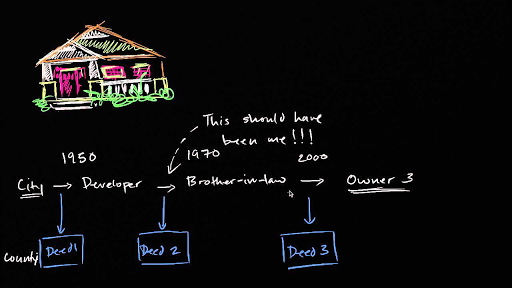 This should have
been me!!!
1950
1970
2000
City → Developer → Brother-in-law → Owner 3
County
Deed 1
Deed 2
Deed 3